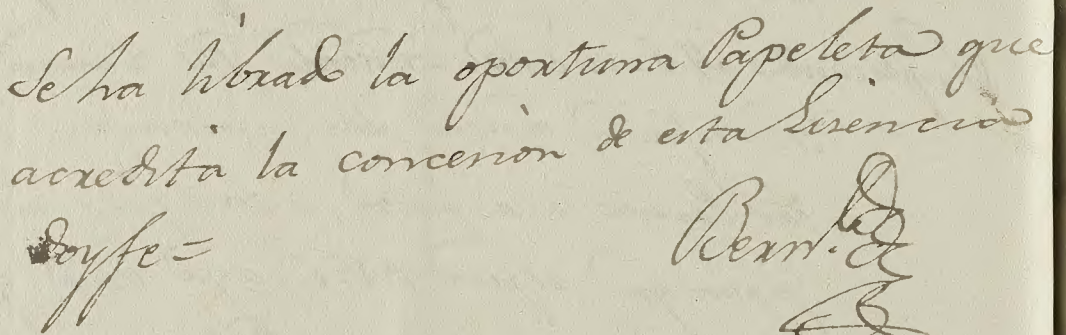 Se ha librado la oportuna Papeleta que
acredita la concesion de esta Lisencia
doy fe =